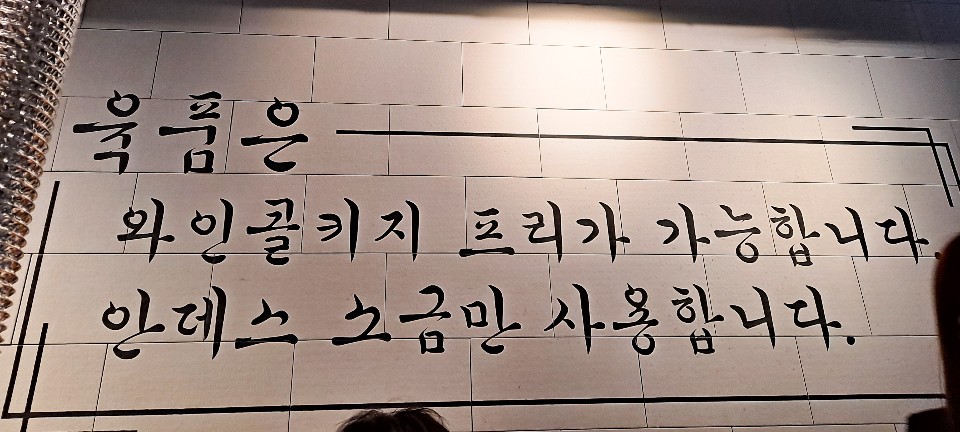 육품은
와인콜키지 프리가 가능합니다.
안데스 소금만 사용합니다.